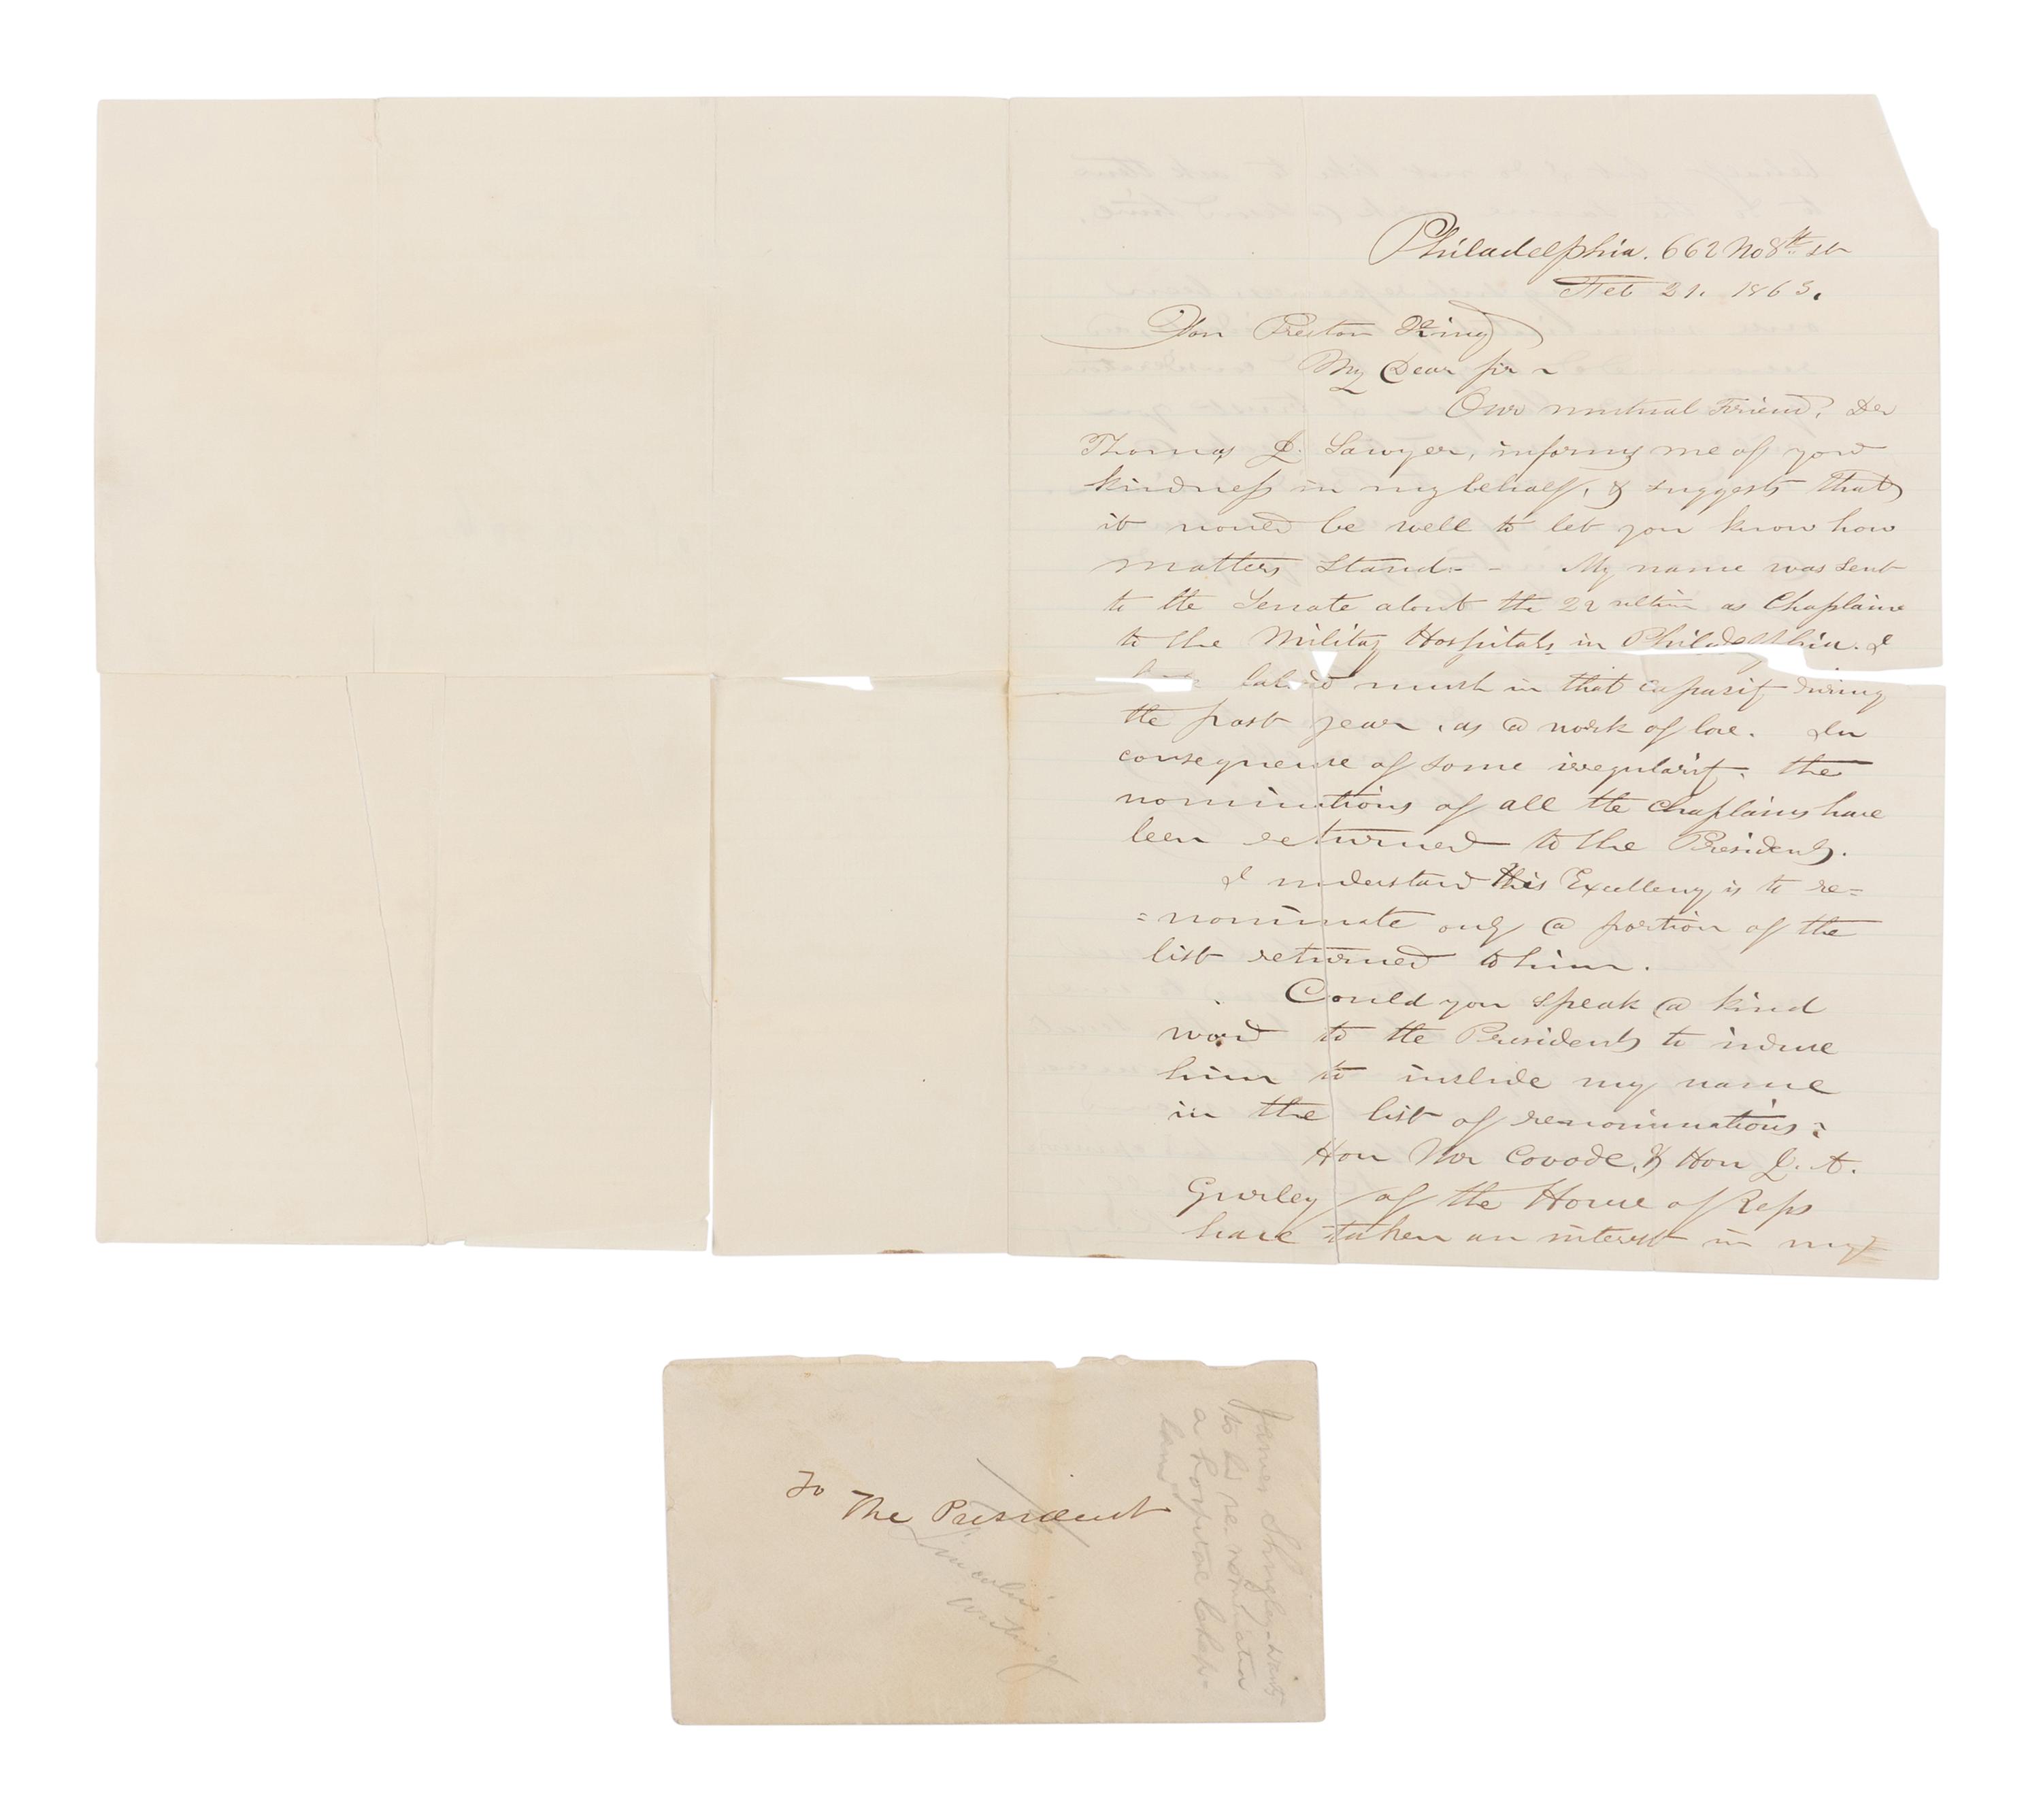 Philadelphia. 662 No 8th st
Feb 21. 1863.
Hon Preston King
My Dear Sir ~
Our mutual Friend, Dr
Thomas J. Sawyer, informs me of your
kindness in my behalf, & suggests that
it would be well to let you know how
matters stand - - My name was sent
to the Senate about the 22 ultim as Chaplain
to the Military Hospitals in Philadelphia. I
have labored much in that capacity during
the past year, as a work of love. In
consequence of some irregularity, the
nominations of all the Chaplains have
been returned to the President.
I understand this Excellency is to re=
=nominate only a portion of the
list returned to him.
Could you speak a kind
word to the President to induce
him to include my name
in the list of renominations?
Hon Mr Covode, & Hon J. A.
Gurley of the House of Reps
have taken an interest in my
To
The President
Lincoln's
writing
James Shrigley - wants
to be re-nominated
a hospital chap-
lain